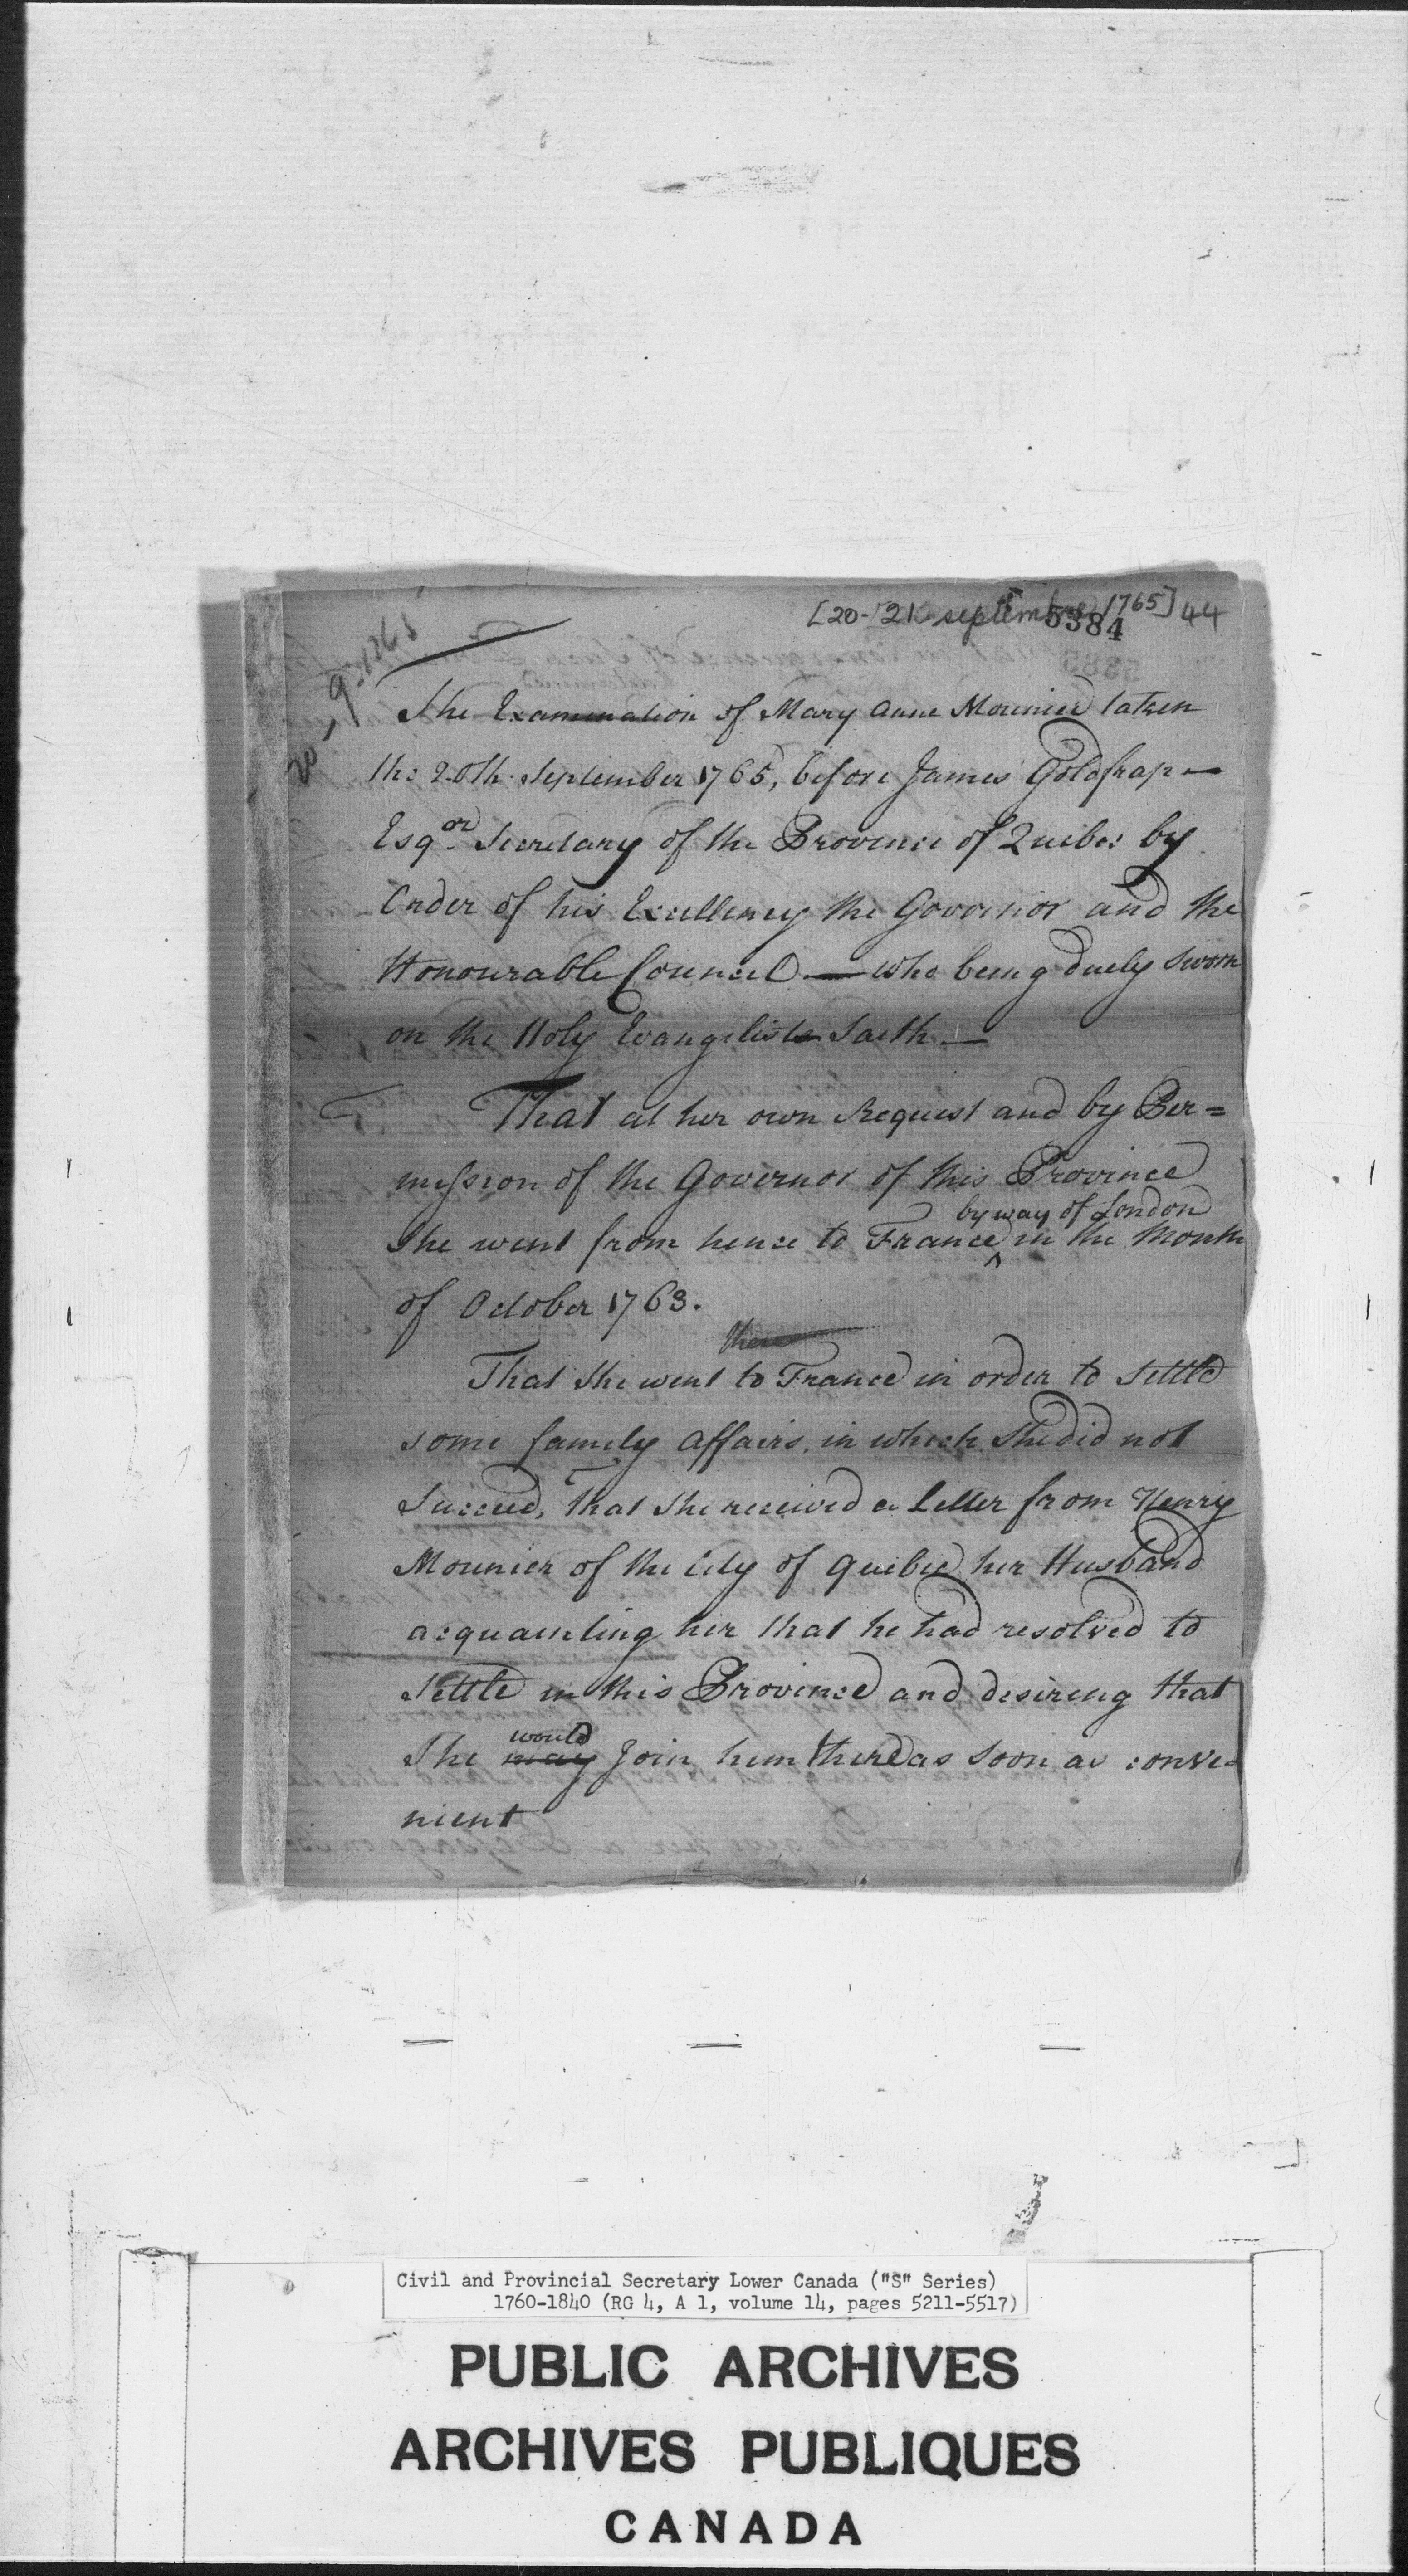 [20-21 septembre 1765] 44
5384
20-9-1765
The Examination of Mary Anne Mounier taken
the 20th September 1765, before James Goldfrap —
Esqor Secretary of the Province of Quebec by
Order of his Excellency the Governor and the
Honourable Council — who being duely sworn
on the Holy Evangelists Saith —
That at her own Request and by Per=
mission of the Governor of this Province
by way of London
She went from hence to France ^ in the Month
of October 1763.
there
That She went to France in order to Settle
some family affairs, in which She did not
Succeed, That She received a Letter from Henry
Mounier of the City of Quebec her Husband
acquainting her that he had resolved to
Settle in this Province and desireing that
would
She may Join him there as Soon as conve=
nient
Civil and Provincial Secretary Lower Canada ("S" Series)
1760-1840 (RG 4, A 1, volume 14, pages 5211-5517)
PUBLIC ARCHIVES
ARCHIVES PUBLIQUES
CANADA